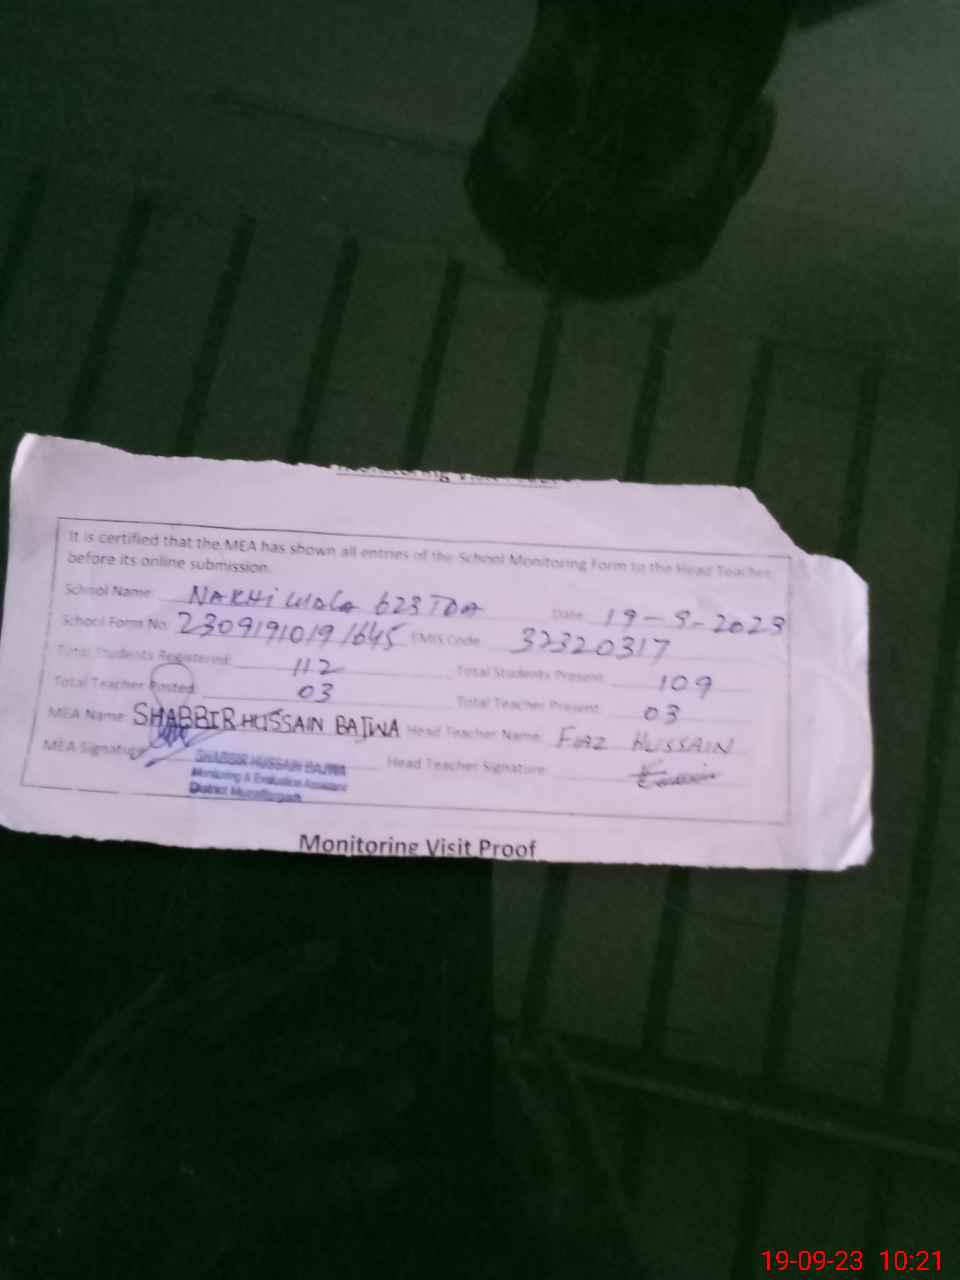 Monitoring Visit Proof
It is certified that the MEA has shown all entries of the School Monitoring Form to the Head Teacher
before its online submission.
School Name: NAKHi WALA 623 TDA Date: 19-9-2023
School Form No: 23091910191645 EMIS Code: 32320317
Total Students Registered: 112 Total Students Present: 109
Total Teacher Posted: 03 Total Teacher Present: 03
MEA Name: SHABBIR HUSSAIN BAJWA Head Teacher Name: FIAZ HUSSAIN
MEA Signature: Head Teacher Signature:
SHABBIR HUSSAIN BAJWA
Monitoring & Evaluation Assistant
District Muzaffargarh
Monitoring Visit Proof
19-09-23 10:21